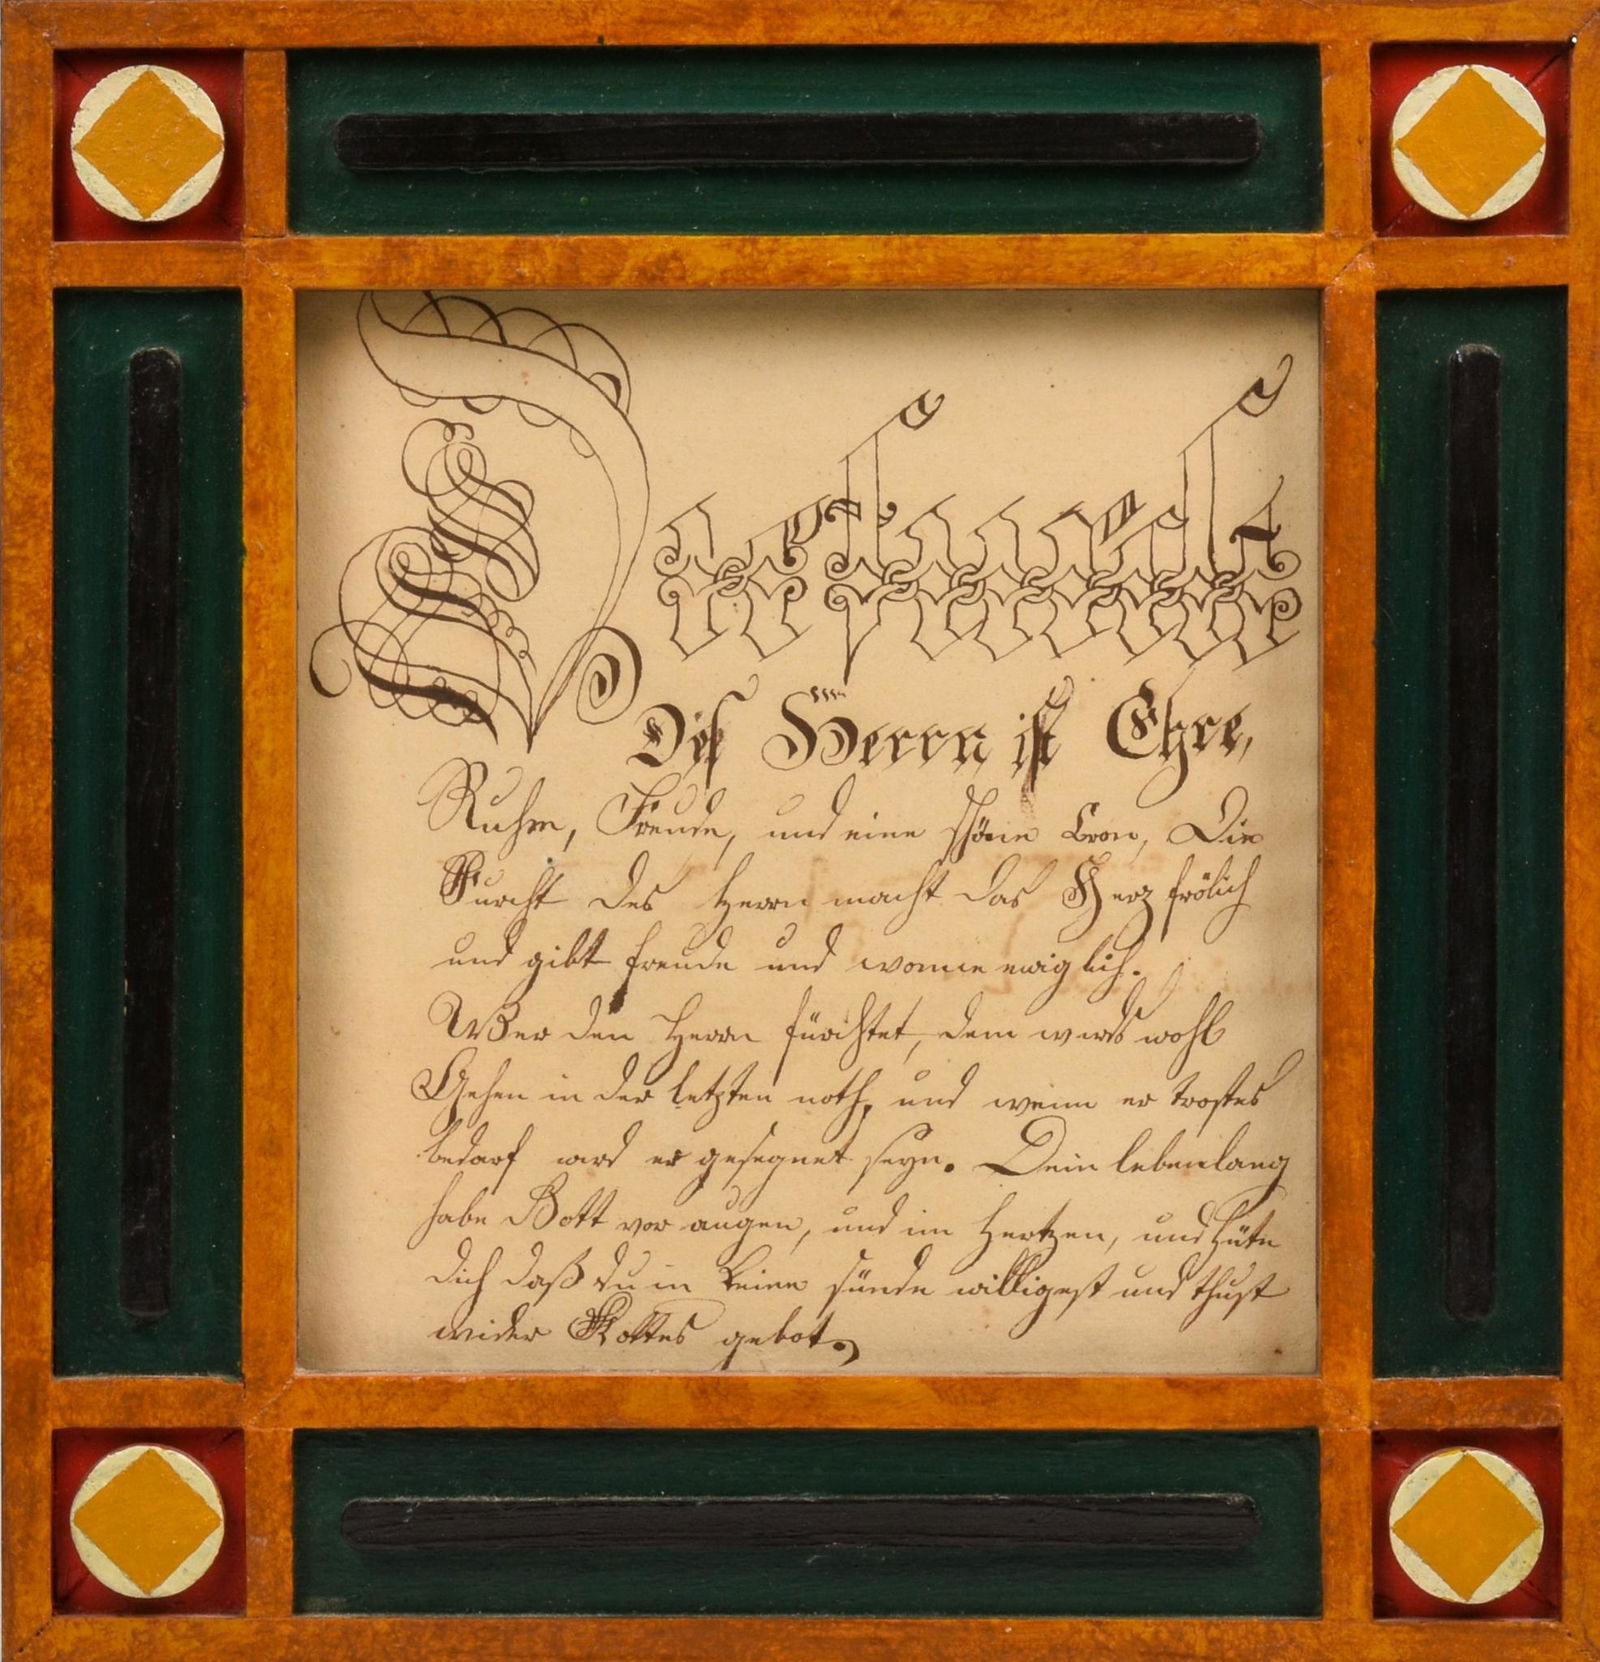 Die Furcht
Des Herrn ist Ehre,
Ruhm, Freude, und eine schöne Cron, Die
Furcht des Herrn macht das Herz frölich
und gibt freude und wonne ewiglich.
Wer den Herrn fürchtet, dem wirds wohl
Gehen in der letzten noth, und wenn er trostes
bedarf wird er gesegnet seyn. Dein lebenlang
habe Gott vor augen, und im Hertzen, und hüte
dich daß du in keine sünde willigest und thust
wider Gottes gebot.